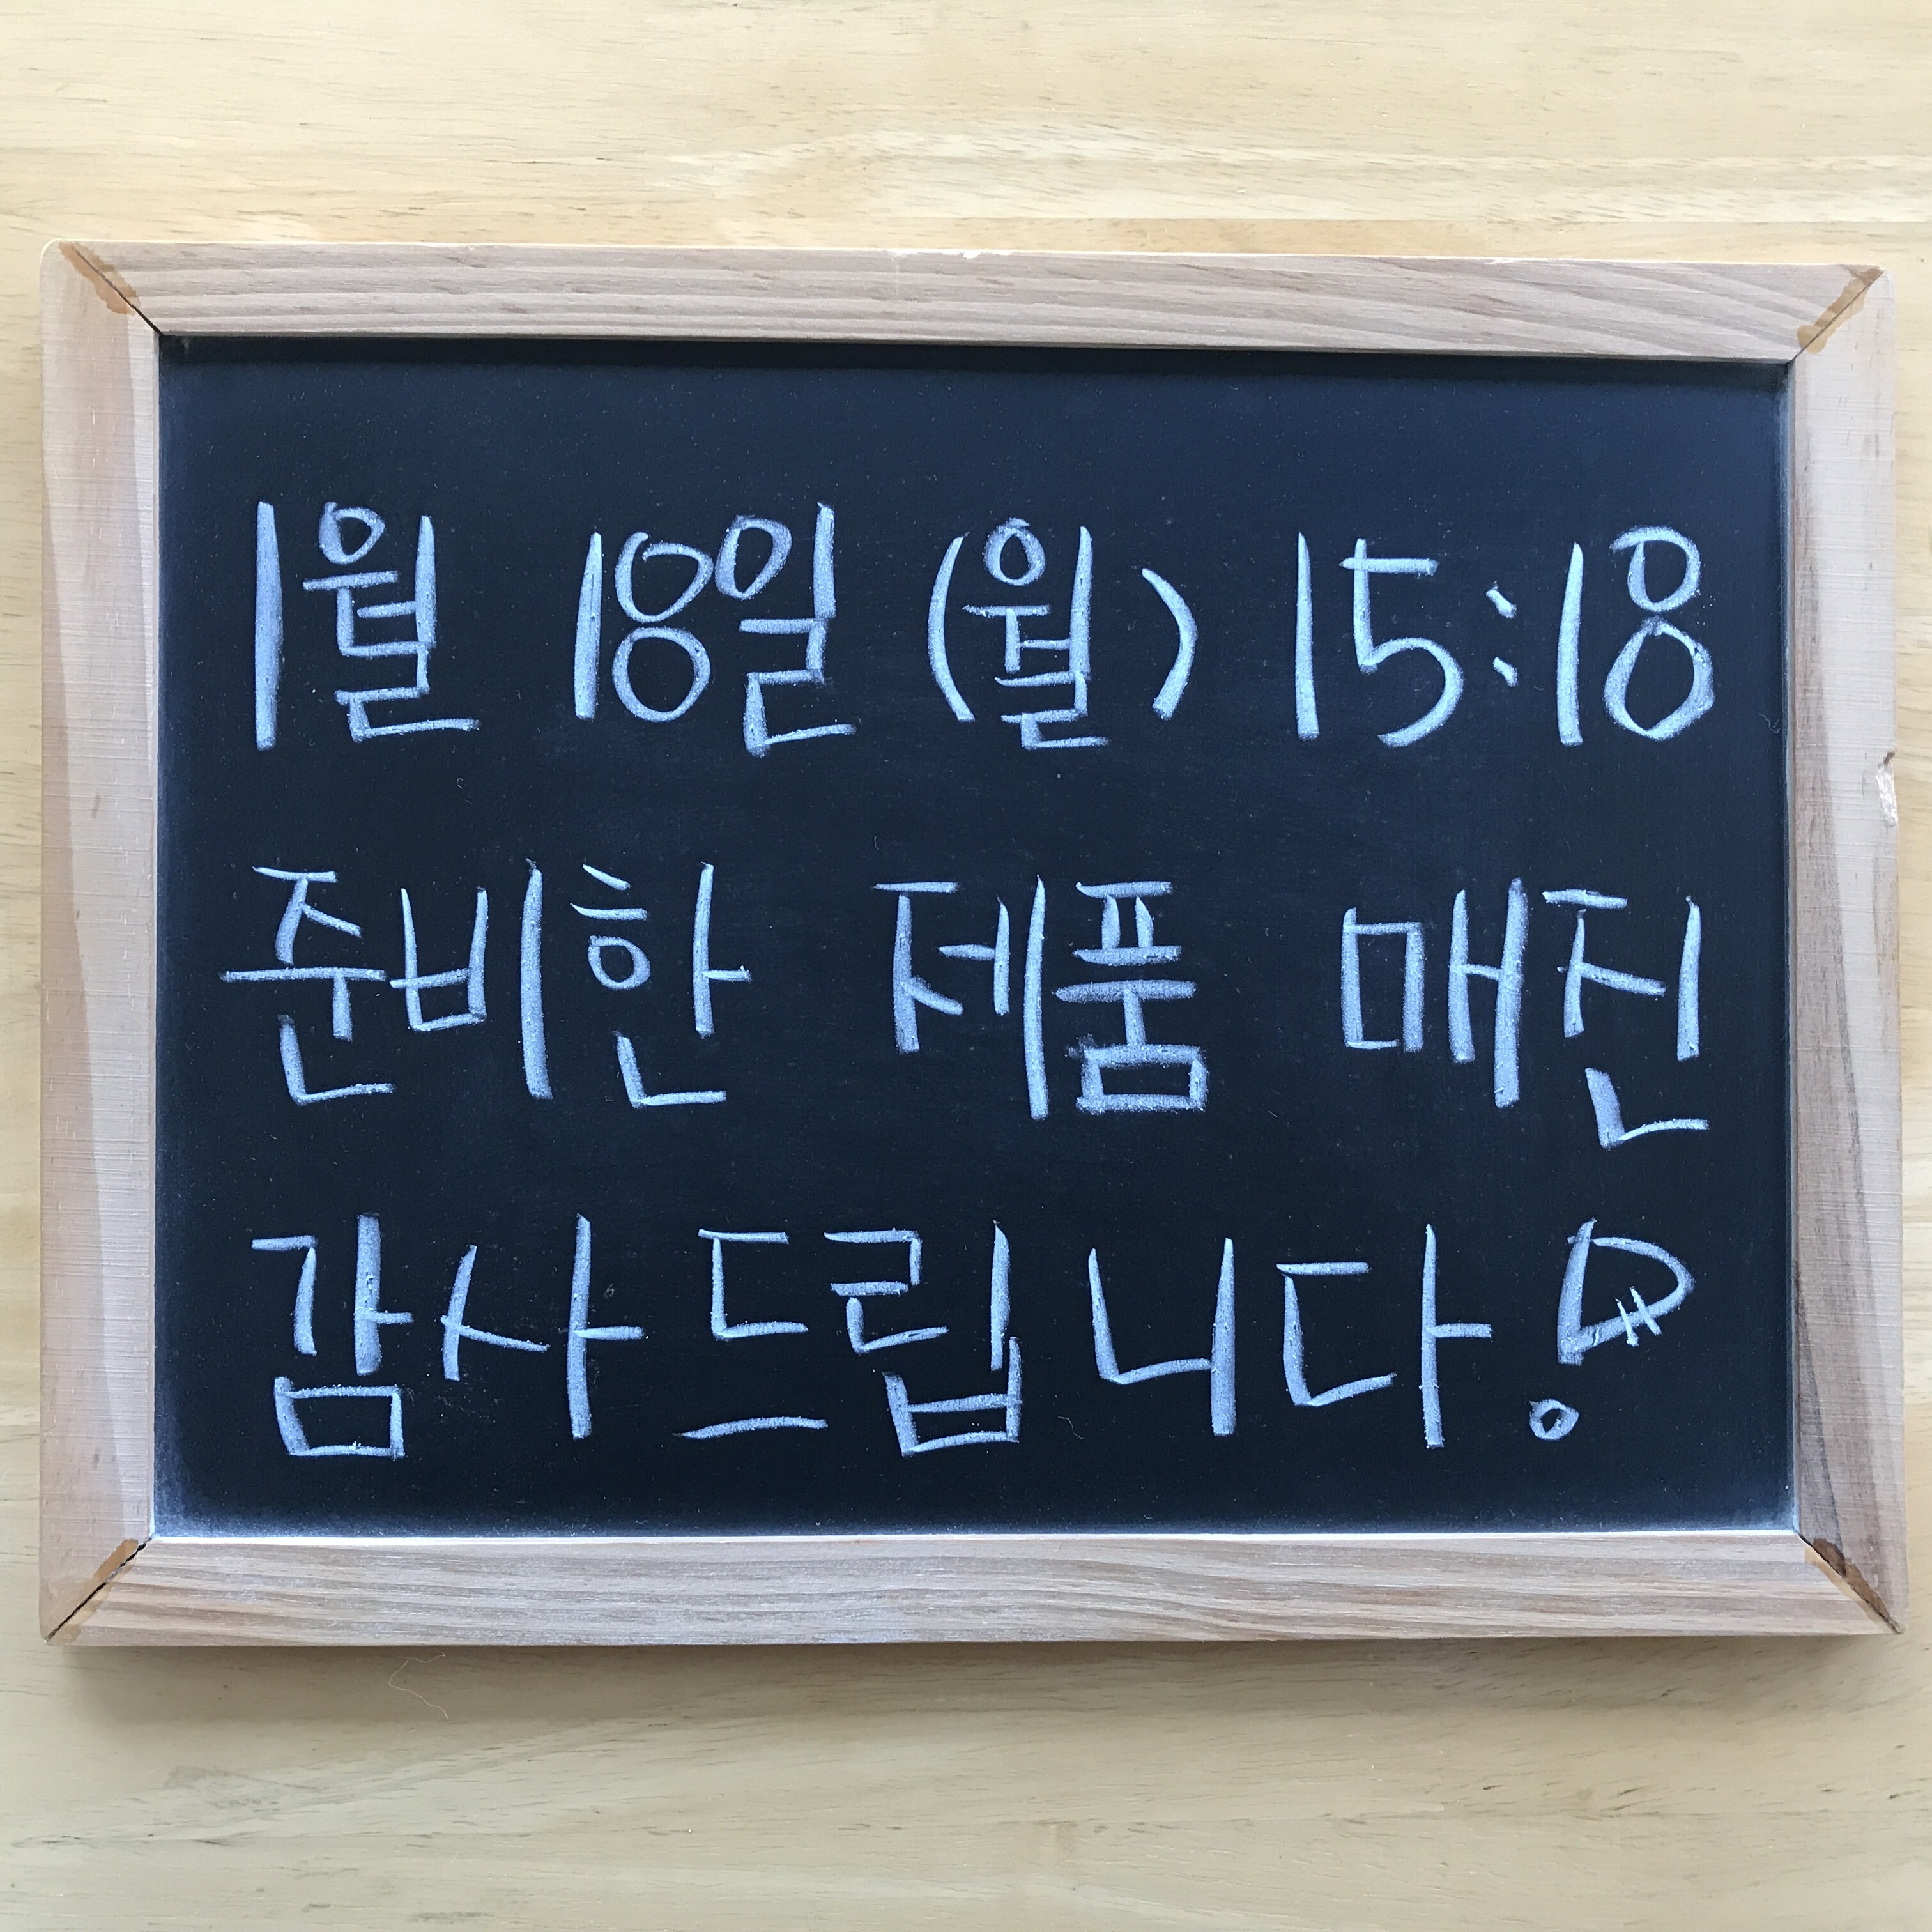 1월 18일 (월) 15:18
준비한 제품 매진
감사드립니다!